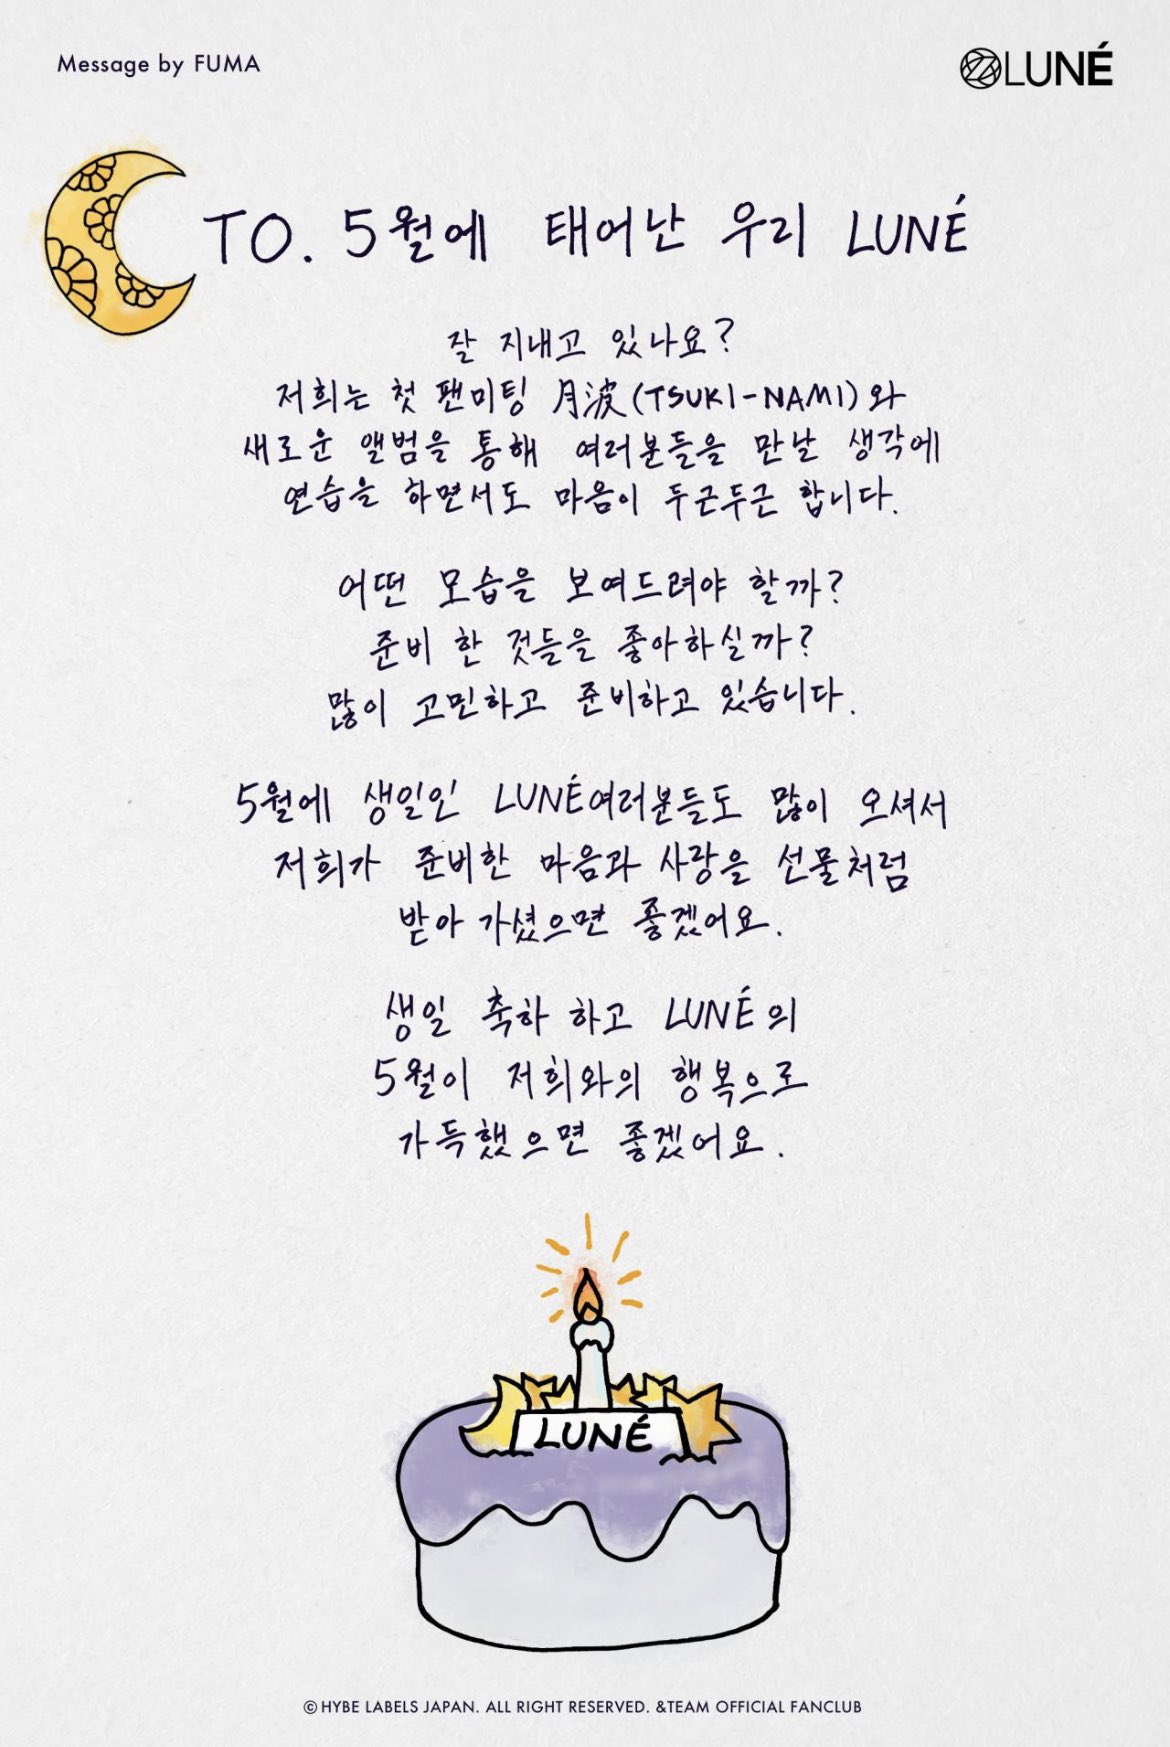 Message by FUMA
LUNÉ
TO. 5월에 태어난 우리 LUNÉ
잘 지내고 있나요?
저희는 첫 팬미팅 月波(TSUKI-NAMI)와
새로운 앨범을 통해 여러분들을 만날 생각에
연습을 하면서도 마음이 두근두근 합니다.
어떤 모습을 보여드려야 할까?
준비 한 것들을 좋아하실까?
많이 고민하고 준비하고 있습니다.
5월에 생일인 LUNÉ여러분들도 많이 오셔서
저희가 준비한 마음과 사랑을 선물처럼
받아 가셨으면 좋겠어요.
생일 축하 하고 LUNÉ의
5월이 저희와의 행복으로
가득했으면 좋겠어요.
LUNÉ
© HYBE LABELS JAPAN. ALL RIGHT RESERVED. &TEAM OFFICIAL FANCLUB